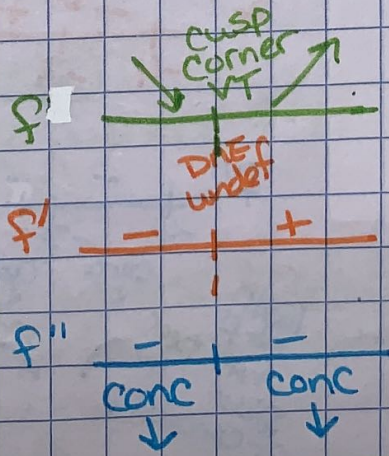 cusp
corner
VT
f
DNE
undef
f' − +
f" − −
conc conc
↓ ↓